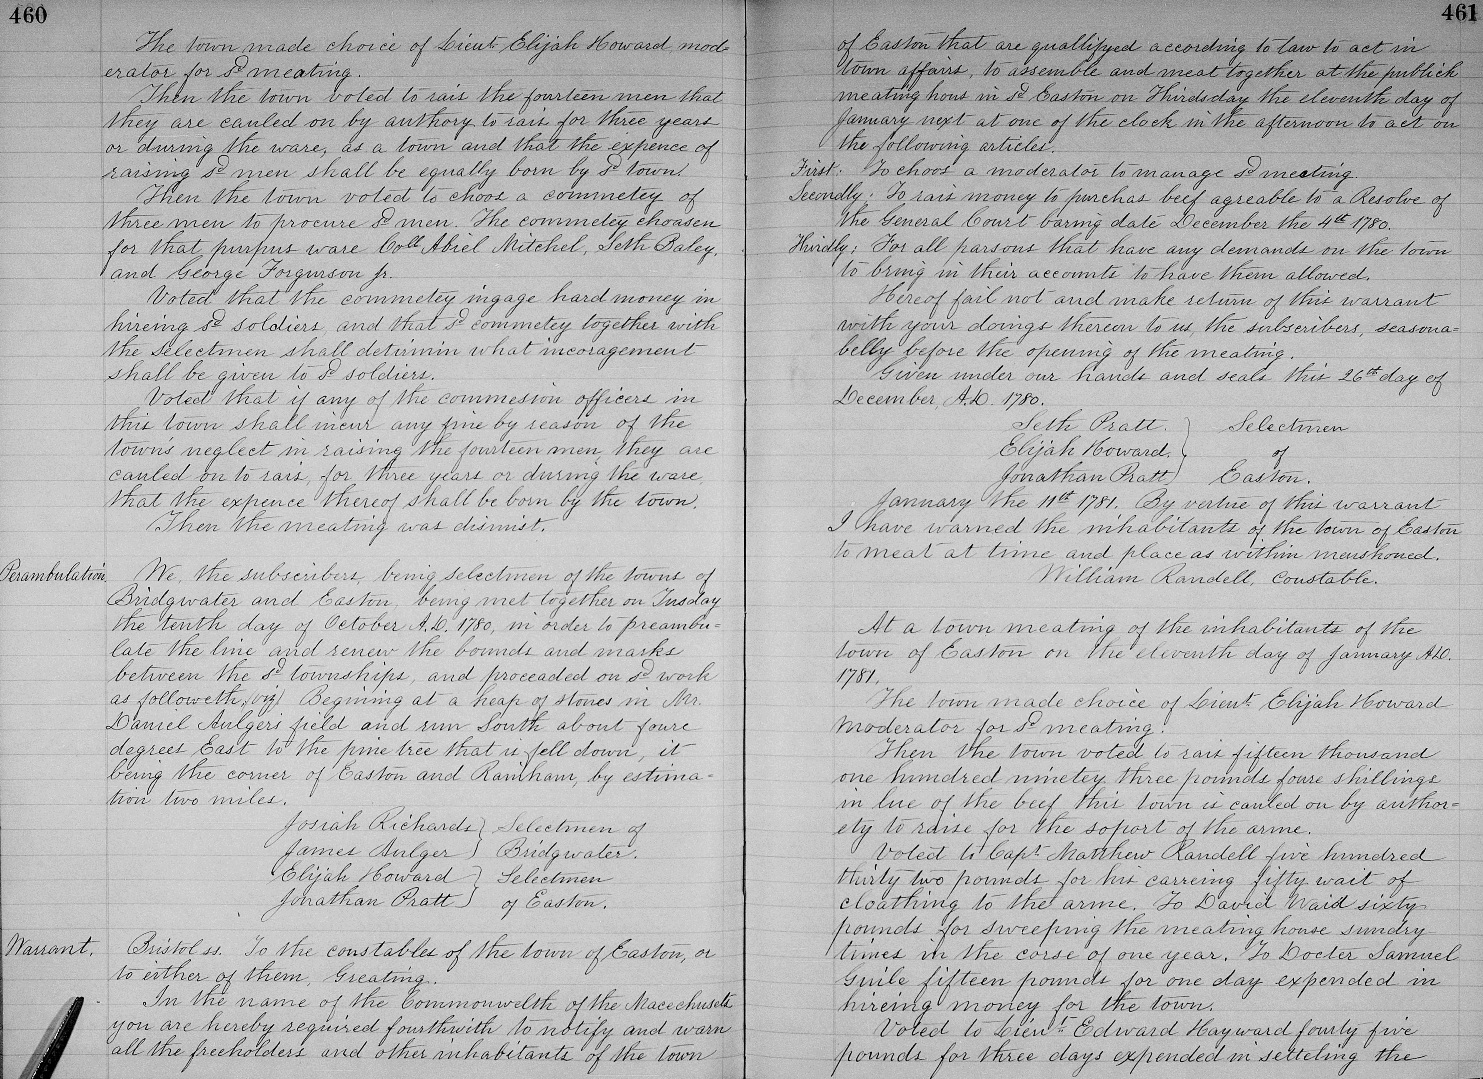 460
The town made choice of Lieut Elijah Howard mod-
erator for sd meating.
Then the town voted to rais the fourteen men that
they are cauled on by authory to rais for three years
or during the ware, as a town and that the expence of
raising sd men shall be equally born by sd town.
Then the town voted to choos a commetey of
three men to procure sd men. The commetey choasen
for that purpus ware Colt Abiel Mitchel, Seth Baley,
and George Forgurson jr.
Voted that the commetey ingage hard money in
hireing sd soldiers, and that sd commetey together with
the selectmen shall detirmin what incoragement
shall be given to sd soldiers.
Voted that if any of the commesion officers in
this town shall incur any fine by reason of the
town's neglect in raising the fourteen men, they are
cauled on to rais, for three years or during the ware,
that the expence thereof shall be born by the town.
Then the meating was dismist.
Perambulation.
We, the subscribers, being selectmen of the towns of
Bridgwater and Easton, being met together on Tusday
the tenth day of October A.D. 1780, in order to preambu=
late the line and renew the bounds and marks
between the sd townships, and proceaded on sd work
as followeth, (viz) Begining at a heap of stones in Mr.
Daniel Aulgers field and run South about foure
degrees East to the pine tree that is fell down, it
being the corner of Easton and Rainham, by estima=
tion two miles.
Josiah Richards } Selectmen of
James Aulger } Bridgwater.
Elijah Howard } Selectmen
Jonathan Pratt } of Easton.
Warrant.
Bristol ss. To the constables of the town of Easton, or
to either of them, Greating.
In the name of the Commonwelth of the Macechusets
you are hereby required fourthwith to notify and warn
all the freeholders and other inhabitants of the town
461
of Easton that are quallifyed according to law to act in
town affairs, to assemble and meat together at the publick
meating hous in sd Easton on Thirdsday the eleventh day of
January next at one of the clock in the afternoon to act on
the following articles.
First: To choos a moderator to manage sd meeting.
Secondly: To rais money to purchas beef agreable to a Resolve of
the General Court baring date December the 4th 1780.
Thirdly: For all parsons that have any demands on the town
to bring in their accounts to have them allowed.
Hereof fail not and make return of this warrant
with your doings thereon to us, the subscribers, seasona=
belly before the opening of the meating.
Given under our hands and seals this 26th day of
December, A.D. 1780.
Seth Pratt. } Selectmen
Elijah Howard. } of
Jonathan Pratt } Easton.
January the 11th 1781. By vertue of this warrant
I have warned the inhabitants of the town of Easton
to meat at time and place as within menshoned.
William Randell, constable.
At a town meating of the inhabitants of the
town of Easton on the eleventh day of January A.D.
1781,
The town made choice of Lieut Elijah Howard
moderator for sd meating.
Then the town voted to rais fifteen thousand
one hundred ninetey three pounds foure shillings
in lue of the beef this town is cauled on by author=
ety to raise for the soport of the arme.
Voted to Capt Matthew Randell five hundred
thirty two pounds for his carreing fifty wait of
cloathing to the arme. To David Waid sixty
pounds for sweeping the meating house sundry
times in the corse of one year. To Docter Samuel
Guile fifteen pounds for one day expended in
hireing money for the town.
Voted to Lieut Edward Hayward fourty five
pounds for three days expended in setteling the